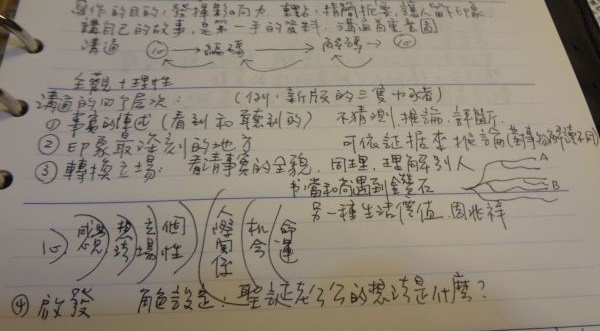 寫作的目的:發揮影响力 輕鬆,精簡扼要,讓人留下印象
講自己的故事,是第一手的資料。溝通着重意圖
溝通 心 → 編碼 → 解碼 → 心
主觀+理性
溝通的四了層次: (例:新版的三隻小豬)
① 事實的陳述(看到和聽到的) 不猜測,推論,評斷.
② 印象最深刻的地方 可依証據來推論
③ 轉換立場: 看清事實的全貌,同理,理解別人 A
書:當和尚遇到鑽石 B
另一種生活價值 周兆祥
心 感覺 想法 立場 個性 人際關係 机會 命運
④ 啟發 角色設定:聖誕老公公的想法是什麼?